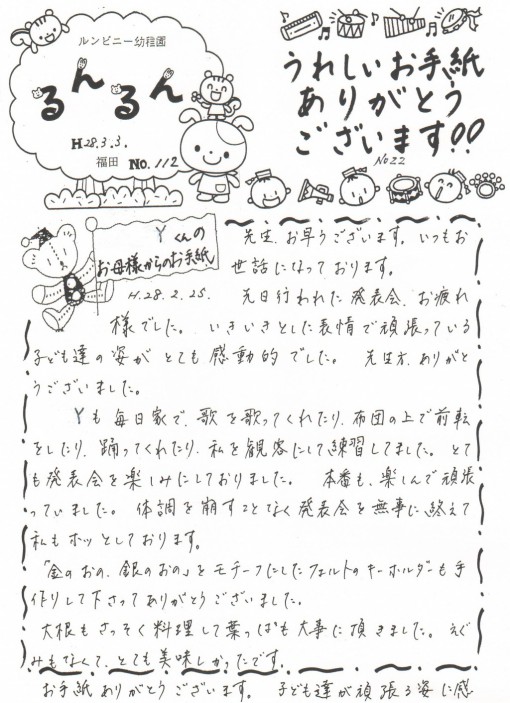 ルンビニー幼稚園
るんるん
H28.3.3.
福田 No.112
うれしいお手紙
ありがとう
ございます!!
No22
Yくんの
お母様からのお手紙
H.28.2.25.
先生、お早うございます。いつもお
世話になっております。
先日行われた発表会、お疲れ
様でした。いきいきとした表情で頑張っている
子ども達の姿がとても感動的でした。先生方、ありがと
うございました。
Yも毎日家で、歌を歌ってくれたり、布団の上で前転
をしたり、踊ってくれたり、私を観客にして練習してました。とて
も発表会を楽しみにしておりました。本番も、楽しんで頑張
っていました。体調を崩すことなく発表会を無事に終えて
私もホッとしております。
「金のおの、銀のおの」をモチーフにしたフェルトのキーホルダーも手
作りして下さってありがとうございました。
大根もさっそく料理して葉っぱも大事に頂きました。えぐ
みもなくて、とても美味しかったです。
お手紙ありがとうございます。子ども達が頑張る姿に感